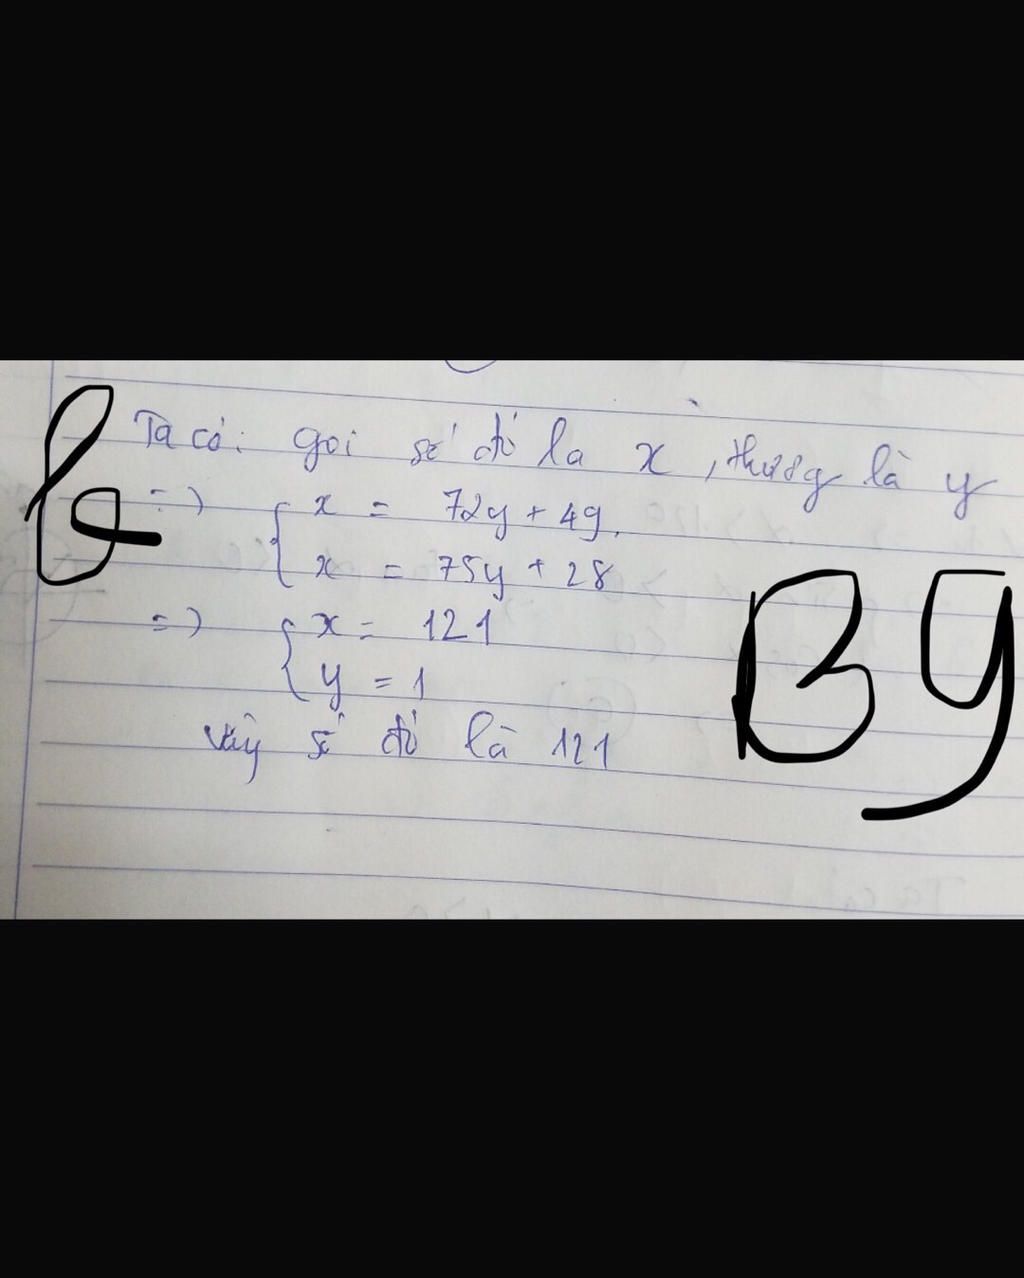 Ta có: goi số đó la x, thương là y
=> { x = 72y + 49.
x = 75y + 28
=> { x = 121
y = 1
Vậy số đó là 121
B9